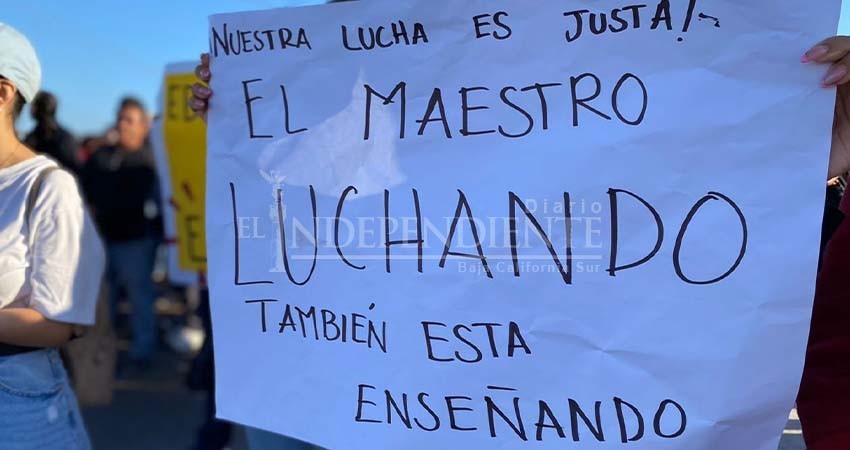 ¡NUESTRA LUCHA ES JUSTA!
EL MAESTRO
LUCHANDO
Diario
EL INDEPENDIENTE
Baja California Sur
TAMBIÉN ESTA
ENSEÑANDO